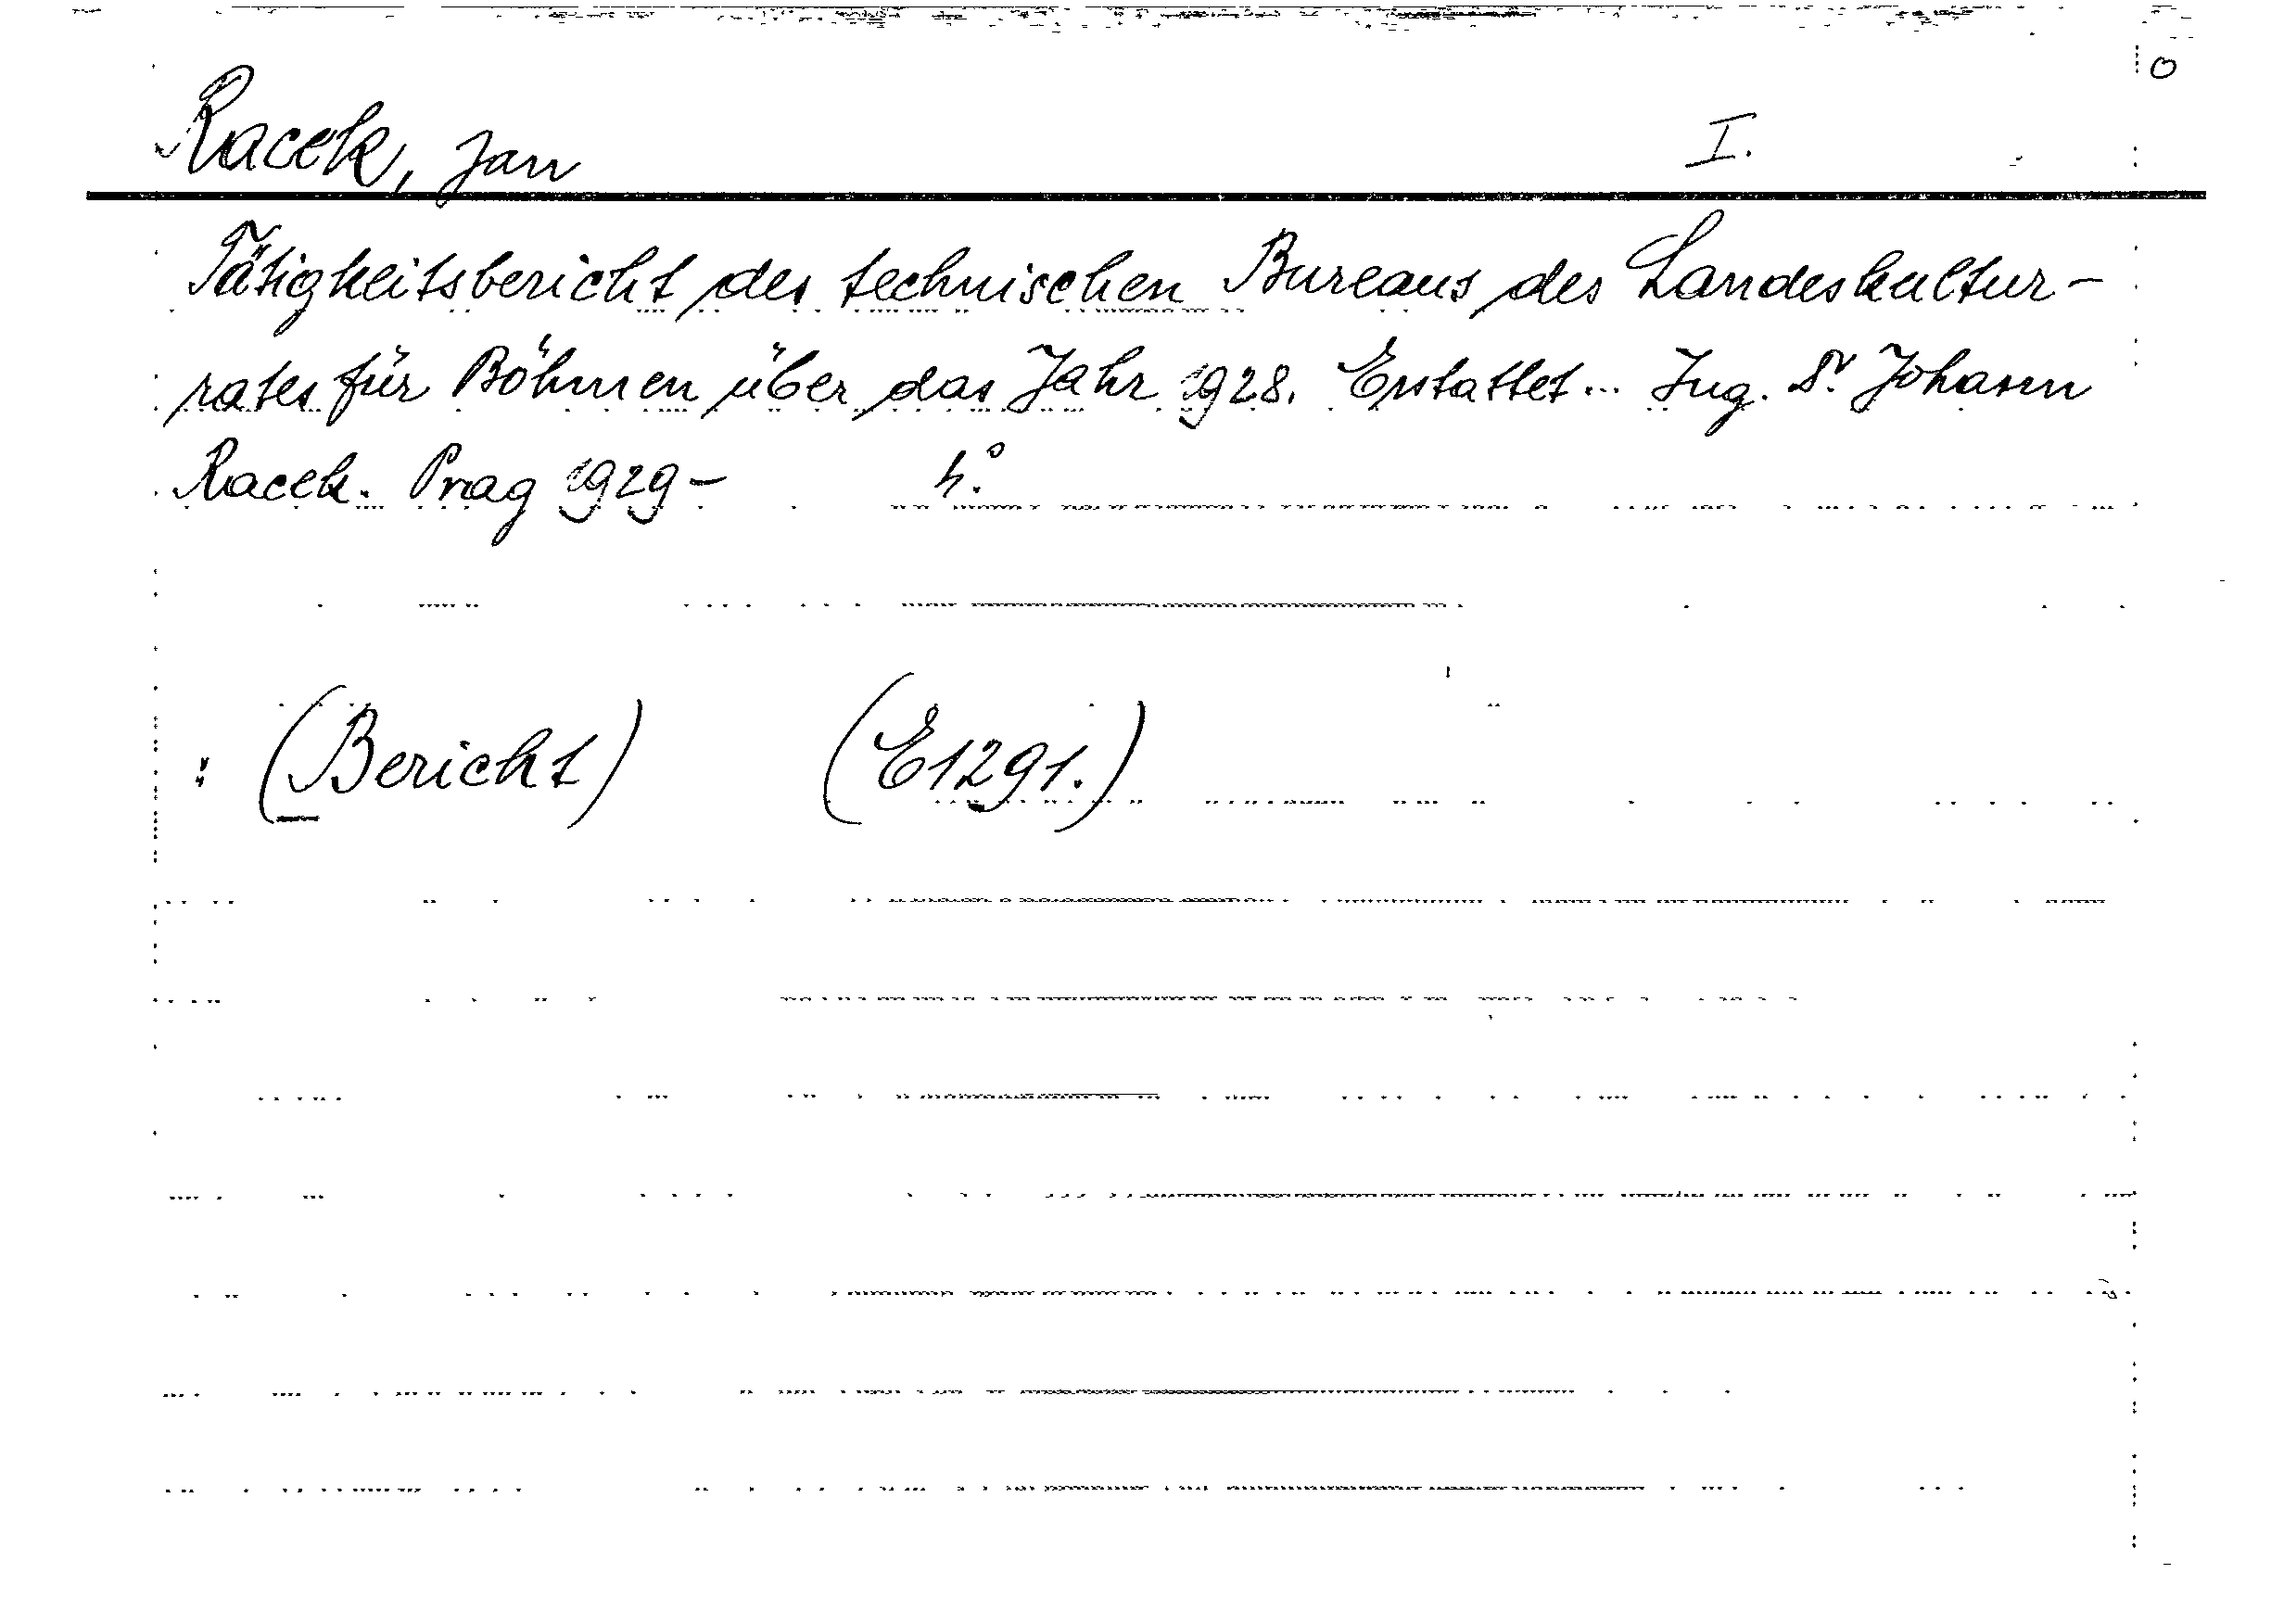 Racek, Jan I.
Tätigkeitsbericht des technischen Bureaus des Landeskultur-
rates für Böhmen über das Jahr 1928. Erstattet... Ing. Dr. Johann
Racek. Prag 1929- 4°.
: (Bericht) (E1291.)